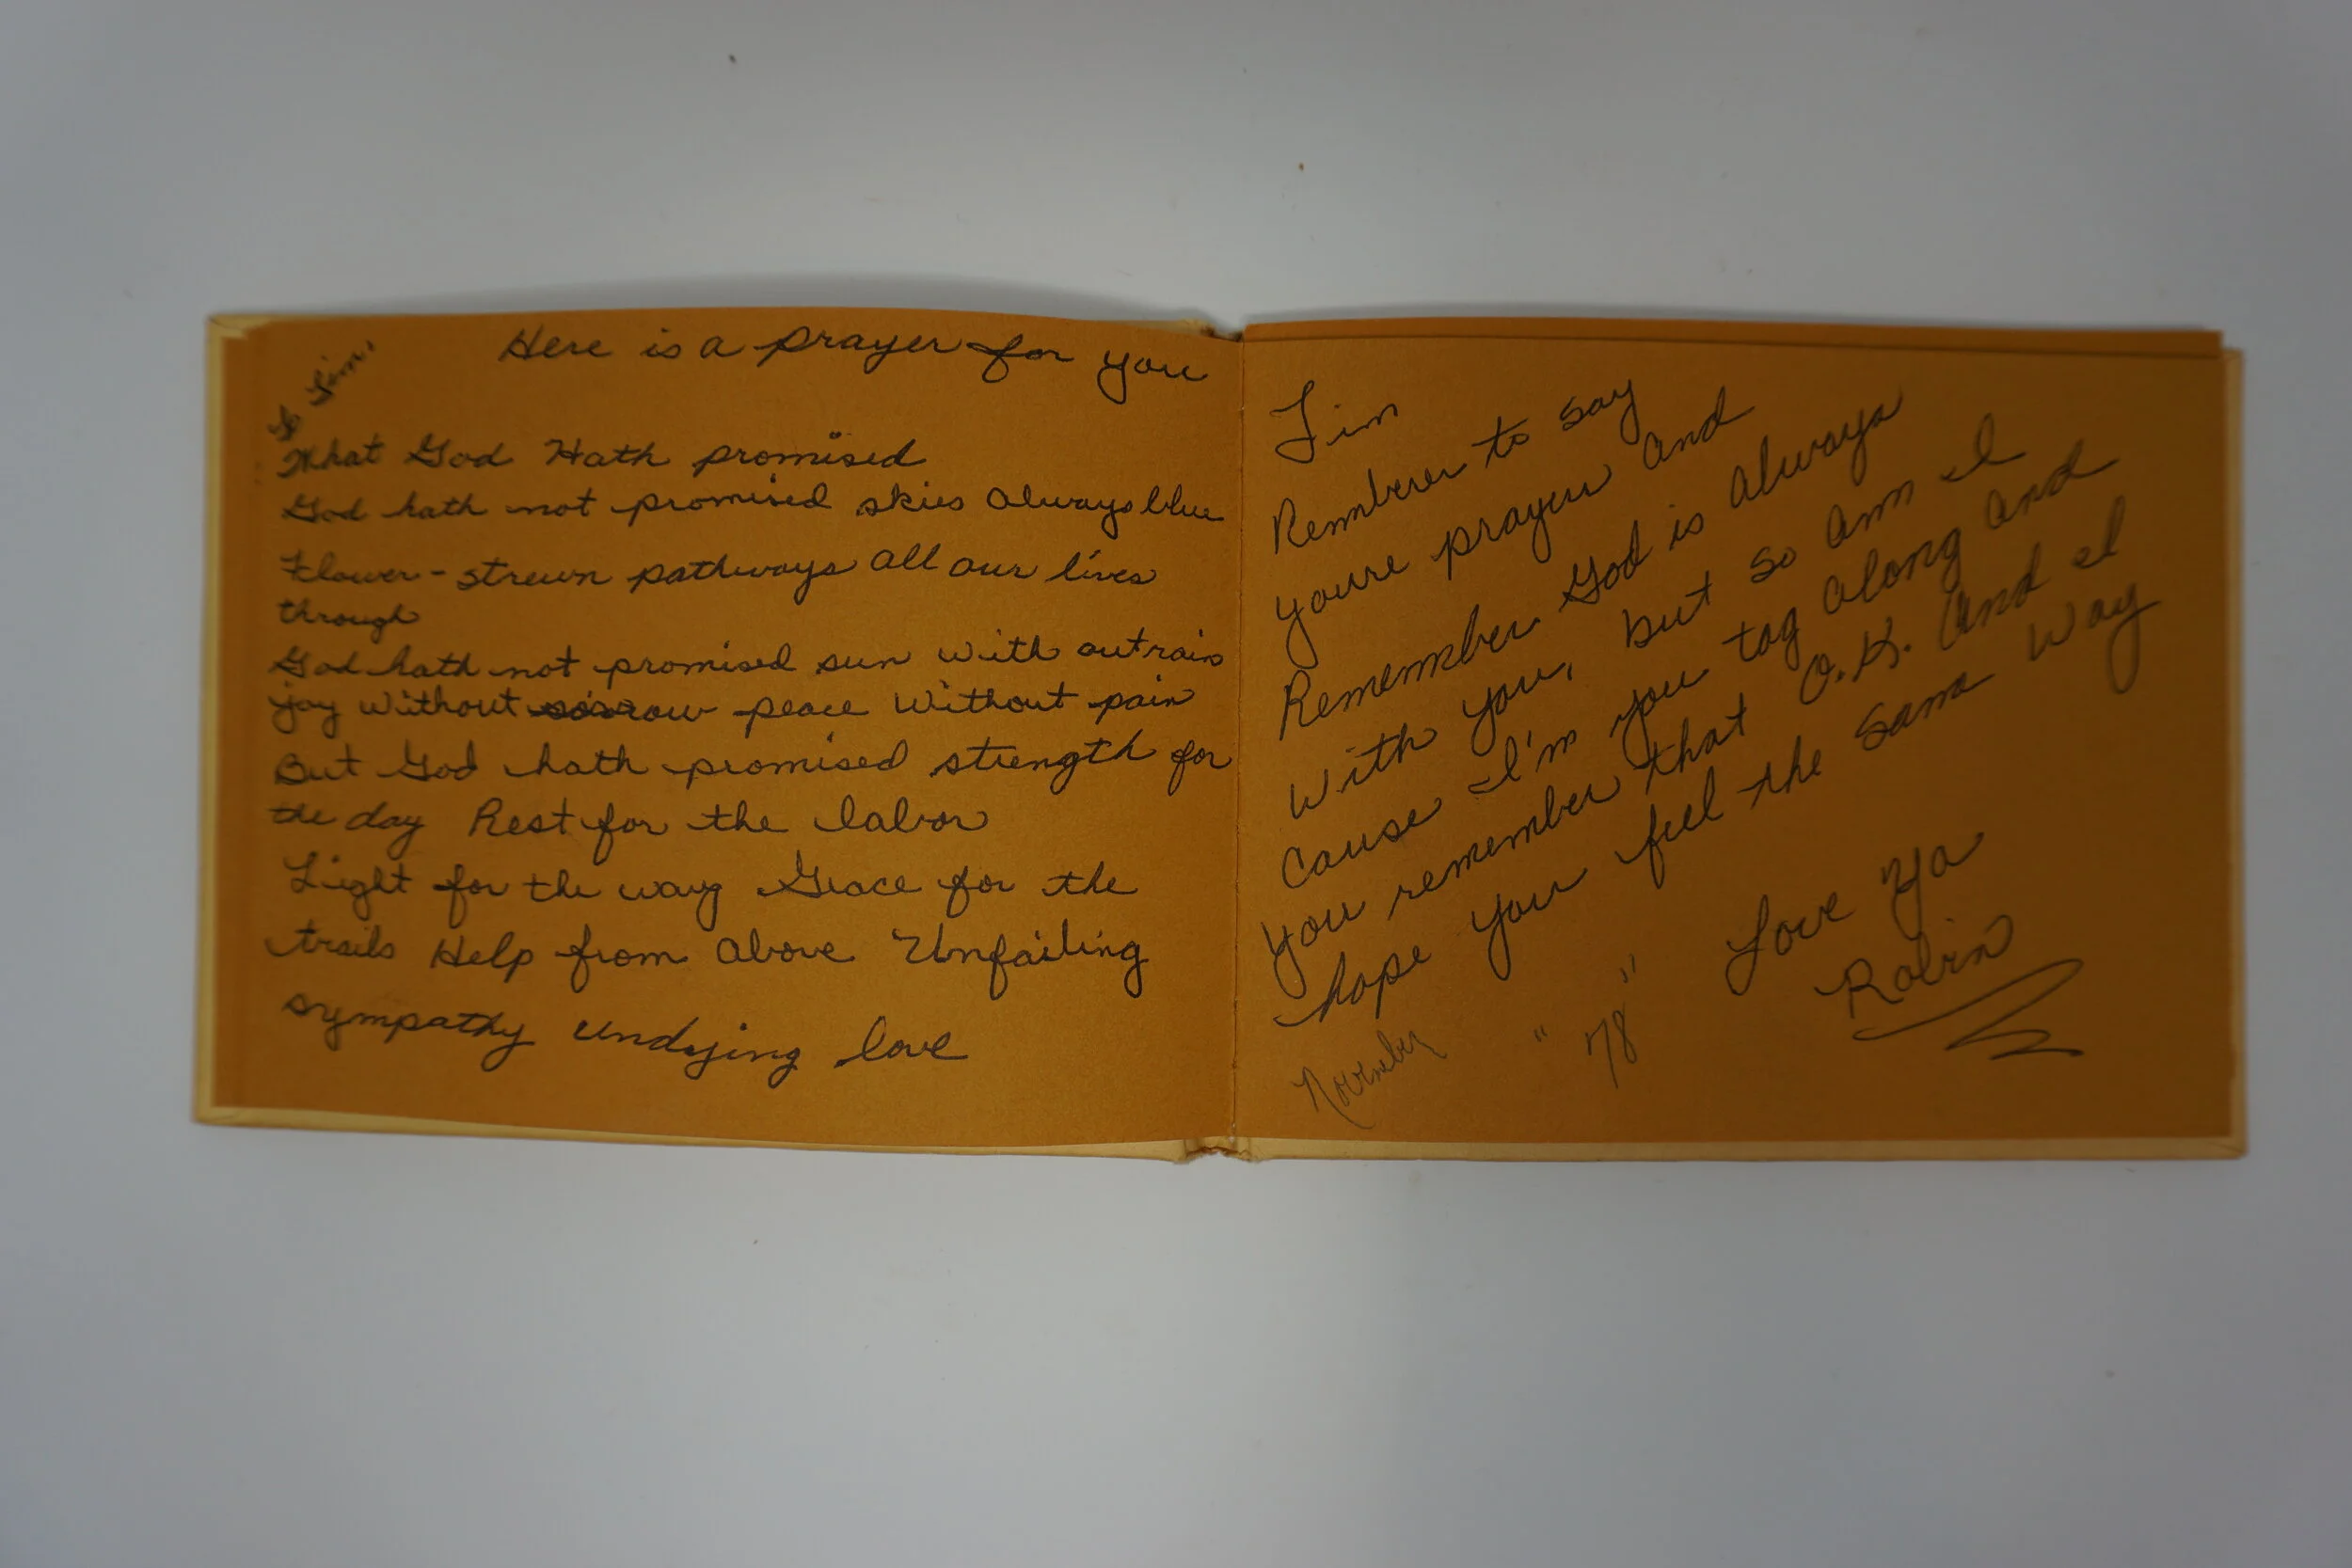 Here is a prayer for you
To Jim,
What God Hath promised
God hath not promised skies always blue
Flower-strewn pathways all our lives
through
God hath not promised sun with out rain
joy without sorrow peace without pain
But God hath promised strength for
the day Rest for the labor
Light for the way Grace for the
trails Help from above Unfailing
sympathy undying love
Jim
Remberer to say
youre prayer and
Remember God is always
with you, but so am I
Cause I'm you tag along and
you remember that O.K. and I
hope you feel the same way
Love Ya
Robin
November "78"